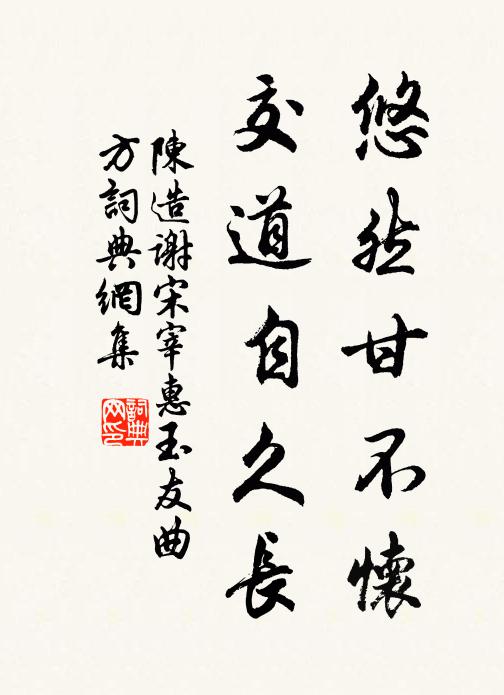 悠然甘不懷
交道自久長
陳造謝宋宰惠玉友曲
方詞典網集
詞典網印